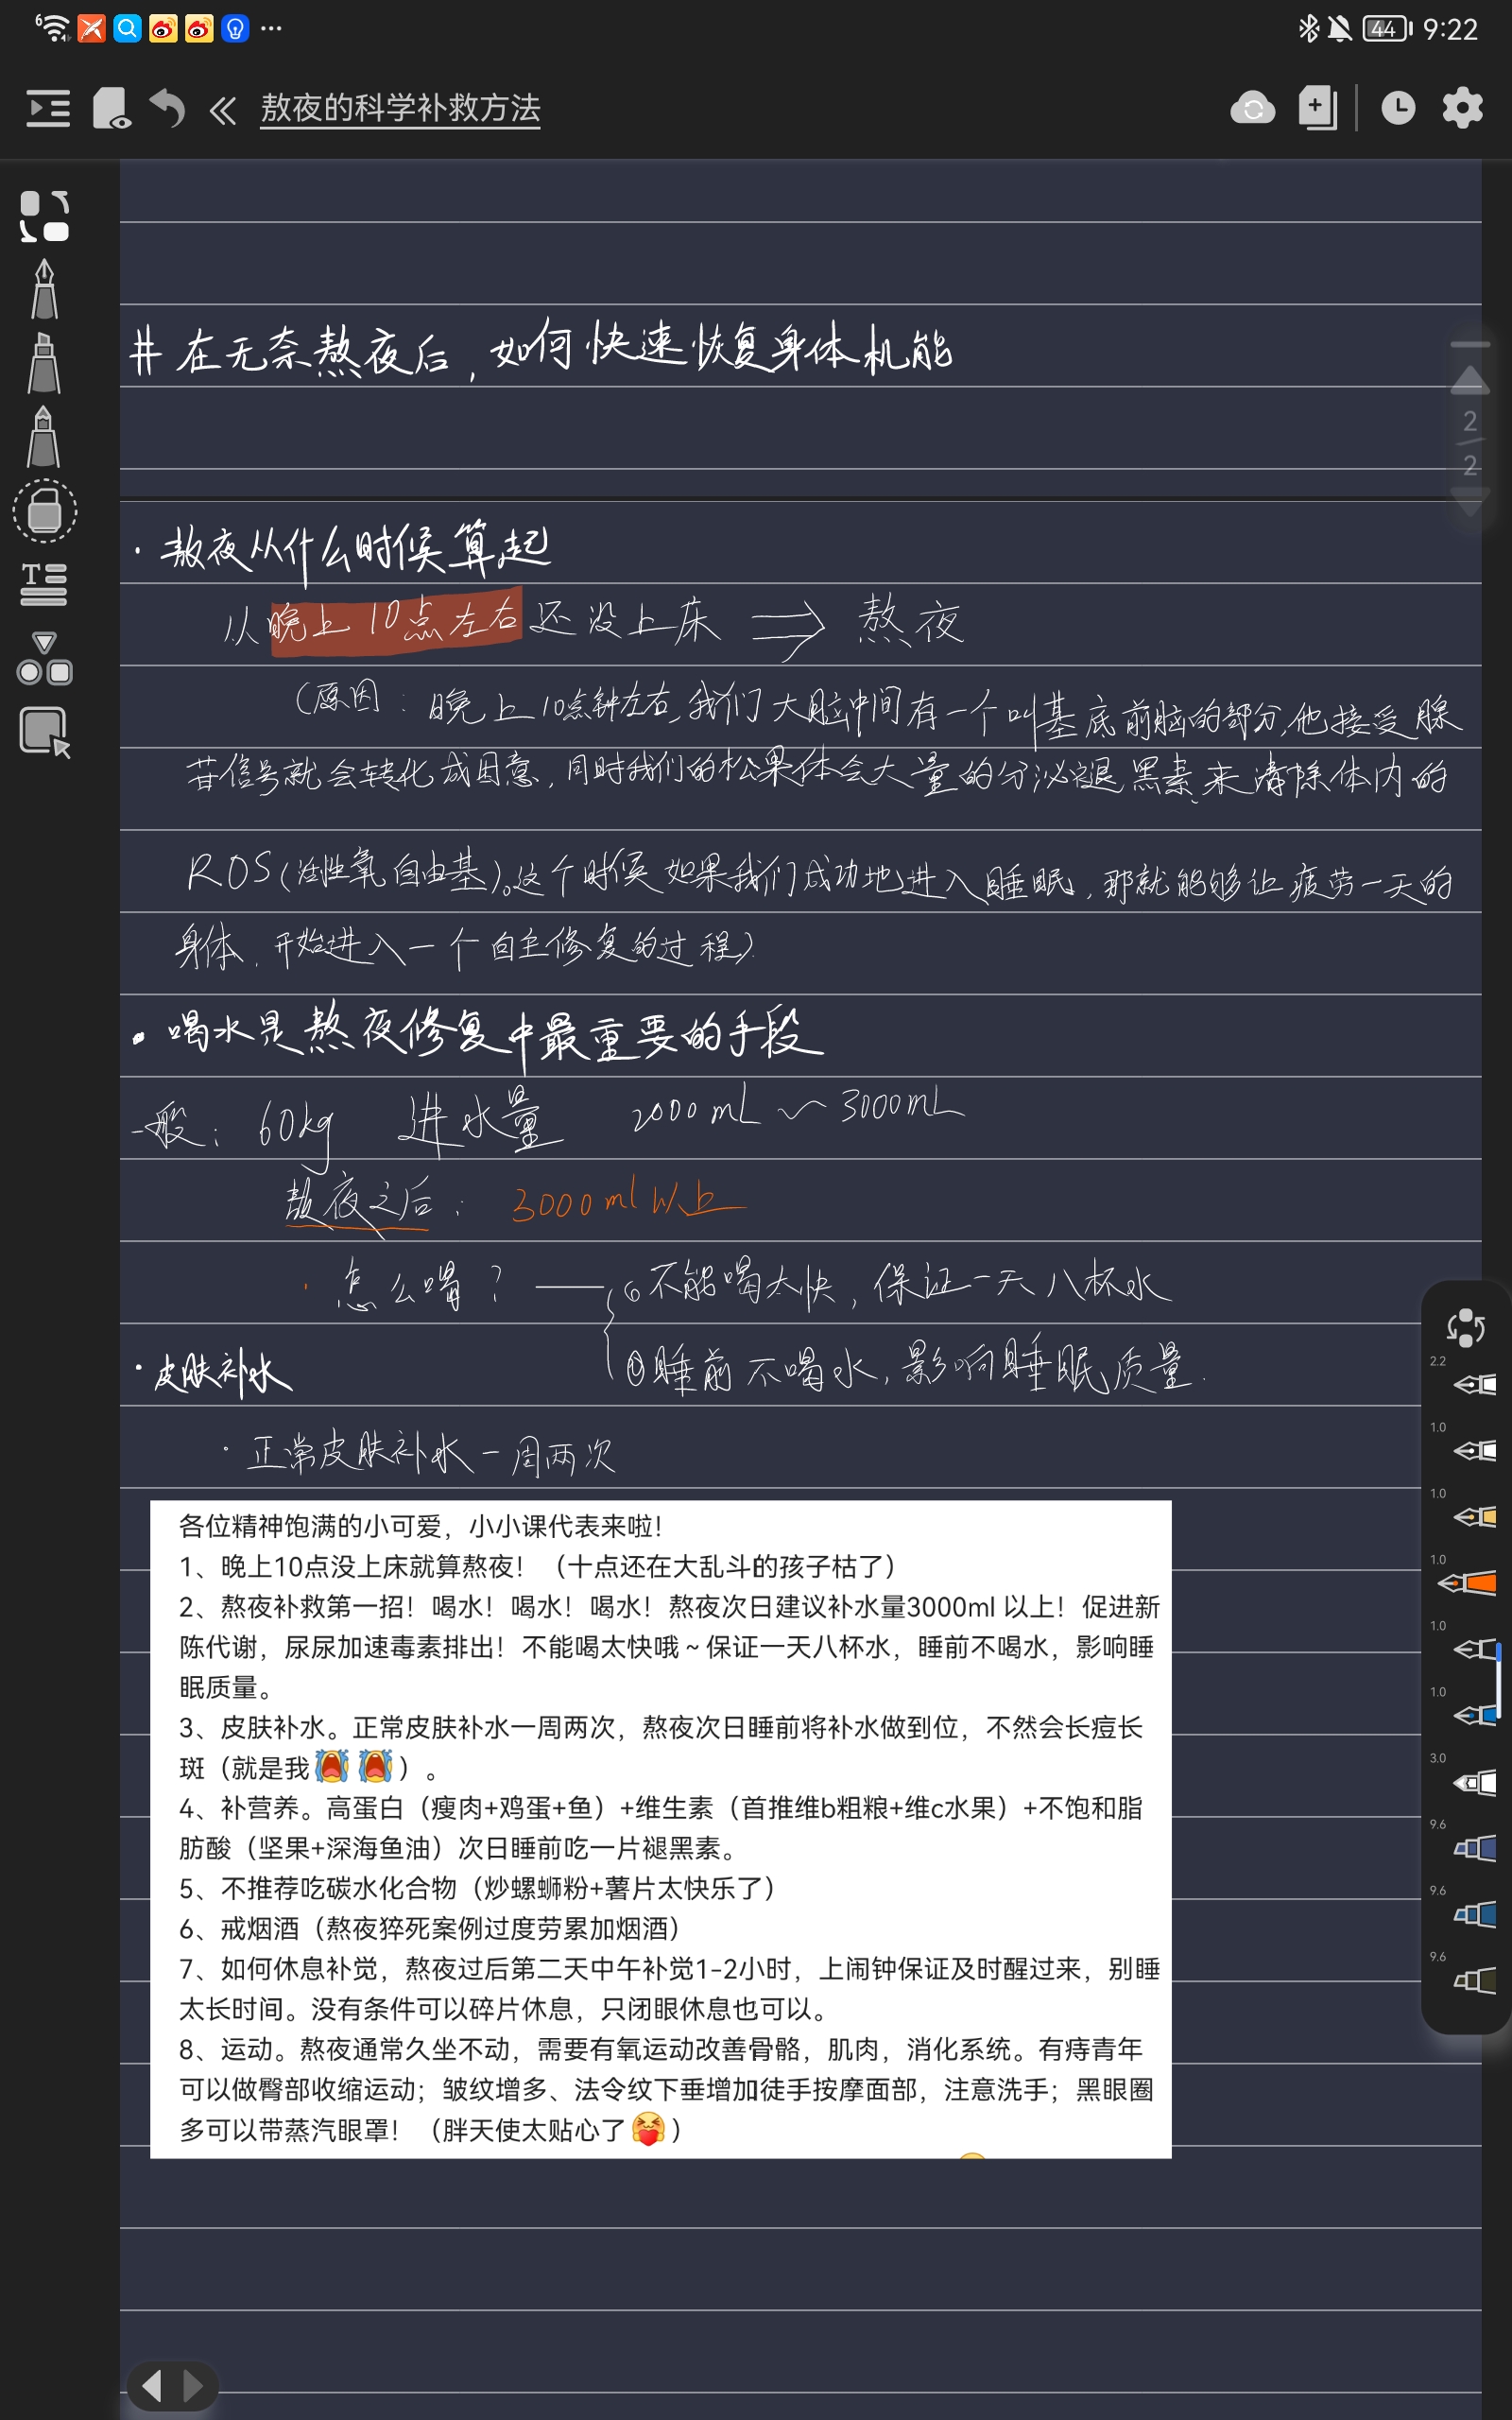 6
44
9:22
敖夜的科学补救方法
# 在无奈熬夜后，如何快速恢复身体机能
2
2
· 敖夜从什么时候算起
从晚上10点左右还没上床 ⟹ 熬夜
（原因：晚上10点钟左右，我们大脑中间有一个叫基底前脑的部分，他接受腺
苷信号就会转化成困意，同时我们的松果体会大量的分泌褪黑素来清除体内的
ROS（活性氧自由基）。这个时候如果我们成功地进入睡眠，那就能够让疲劳一天的
身体，开始进入一个自主修复的过程）
· 喝水是熬夜修复中最重要的手段
一般：60kg 进水量 2000mL ~ 3000mL
敖夜之后： 3000ml以上
· 怎么喝？—— ⓪不能喝太快，保证一天八杯水
· 皮肤补水
①睡前不喝水，影响睡眠质量.
· 正常皮肤补水一周两次
各位精神饱满的小可爱，小小课代表来啦！
1、晚上10点没上床就算熬夜！（十点还在大乱斗的孩子枯了）
2、熬夜补救第一招！喝水！喝水！喝水！熬夜次日建议补水量3000ml 以上！促进新
陈代谢，尿尿加速毒素排出！不能喝太快哦～保证一天八杯水，睡前不喝水，影响睡
眠质量。
3、皮肤补水。正常皮肤补水一周两次，熬夜次日睡前将补水做到位，不然会长痘长
斑（就是我😭😭）。
4、补营养。高蛋白（瘦肉+鸡蛋+鱼）+维生素（首推维b粗粮+维c水果）+不饱和脂
肪酸（坚果+深海鱼油）次日睡前吃一片褪黑素。
5、不推荐吃碳水化合物（炒螺蛳粉+薯片太快乐了）
6、戒烟酒（熬夜猝死案例过度劳累加烟酒）
7、如何休息补觉，熬夜过后第二天中午补觉1-2小时，上闹钟保证及时醒过来，别睡
太长时间。没有条件可以碎片休息，只闭眼休息也可以。
8、运动。熬夜通常久坐不动，需要有氧运动改善骨骼，肌肉，消化系统。有痔青年
可以做臀部收缩运动；皱纹增多、法令纹下垂增加徒手按摩面部，注意洗手；黑眼圈
多可以带蒸汽眼罩！（胖天使太贴心了）
2.2
1.0
1.0
1.0
1.0
1.0
3.0
9.6
9.6
9.6